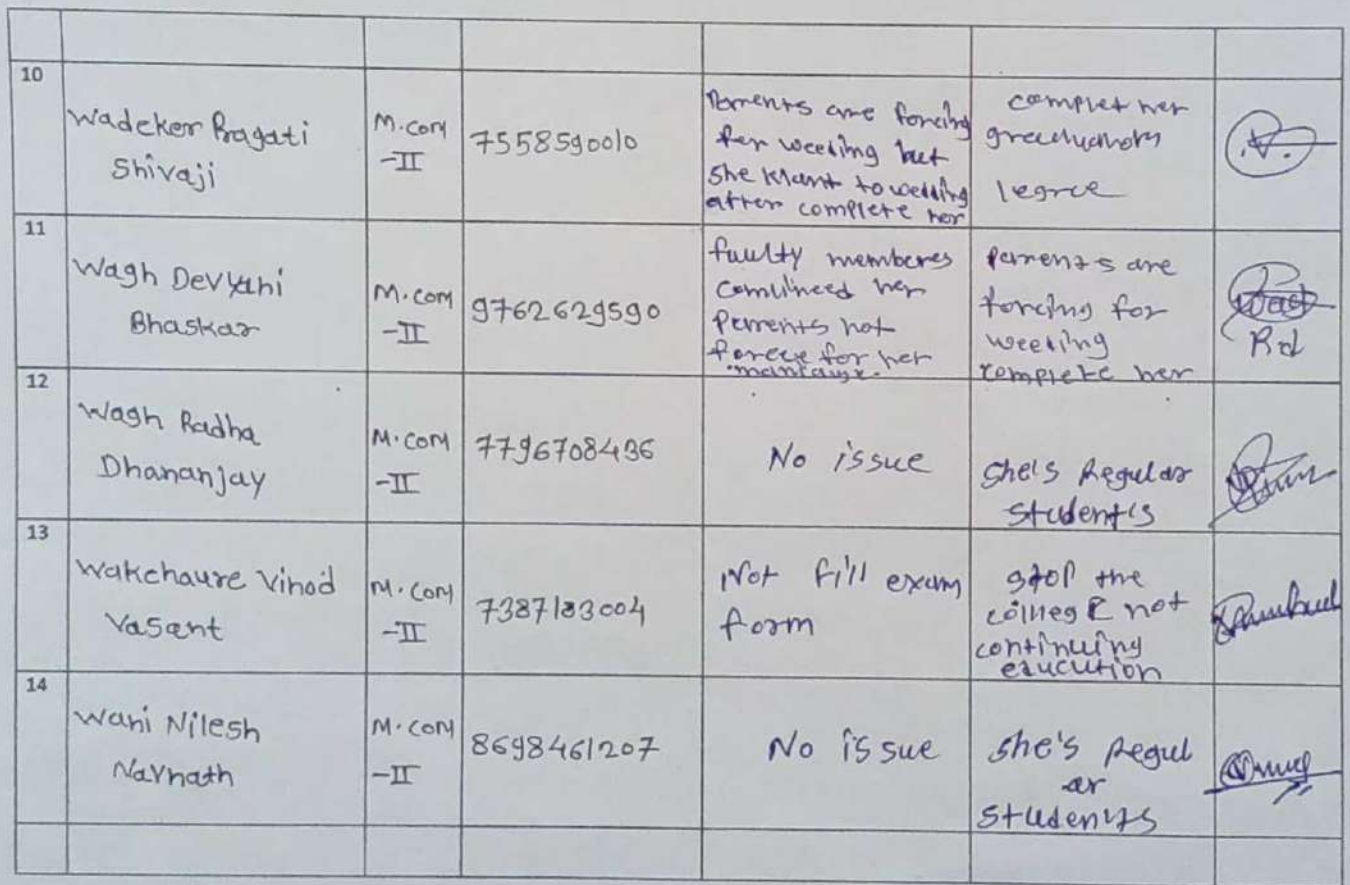 10
Wadeker Pragati
Shivaji
M.com
-II
7558590010
Parents are forcing
for weeding but
she want to wedding
after complete her
complet her
graduations
legree
11
Wagh Devyani
Bhaskar
M.com
-II
9762629590
faulty memberes
comlineed her
Perrents not
forece for her
perrents are
forcing for
weeding
complete her
12
Wagh Radha
Dhananjay
M.com
-II
7796708436
No issue
she's Regular
student's
13
Wakchaure Vinod
Vasant
M.com
-II
7387183004
Not fill exam
form
stop the
not
continuing
education
14
Wani Nilesh
Navnath
M.com
-II
8698461207
No issue
she's Regul
ar
students